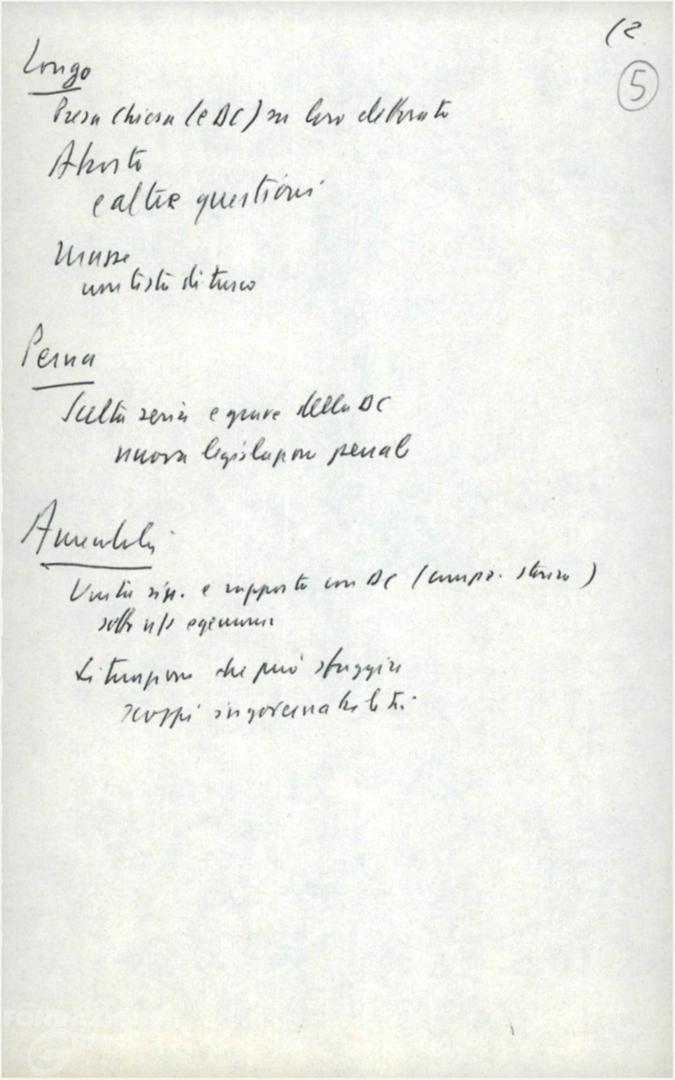 12
5
Longo
Presa Chiesa (e DC) su loro elettorato
Aborto
e altre questioni
Masse
Perna
Scelta seria e grave della DC
nuova legislazione penale
Amendola
Unità sin. e rapporto con DC (comp. storico)
sotto n/s egemonia
Situazione che può sfuggire
scoppi ingovernabilità
FONDAZIONE